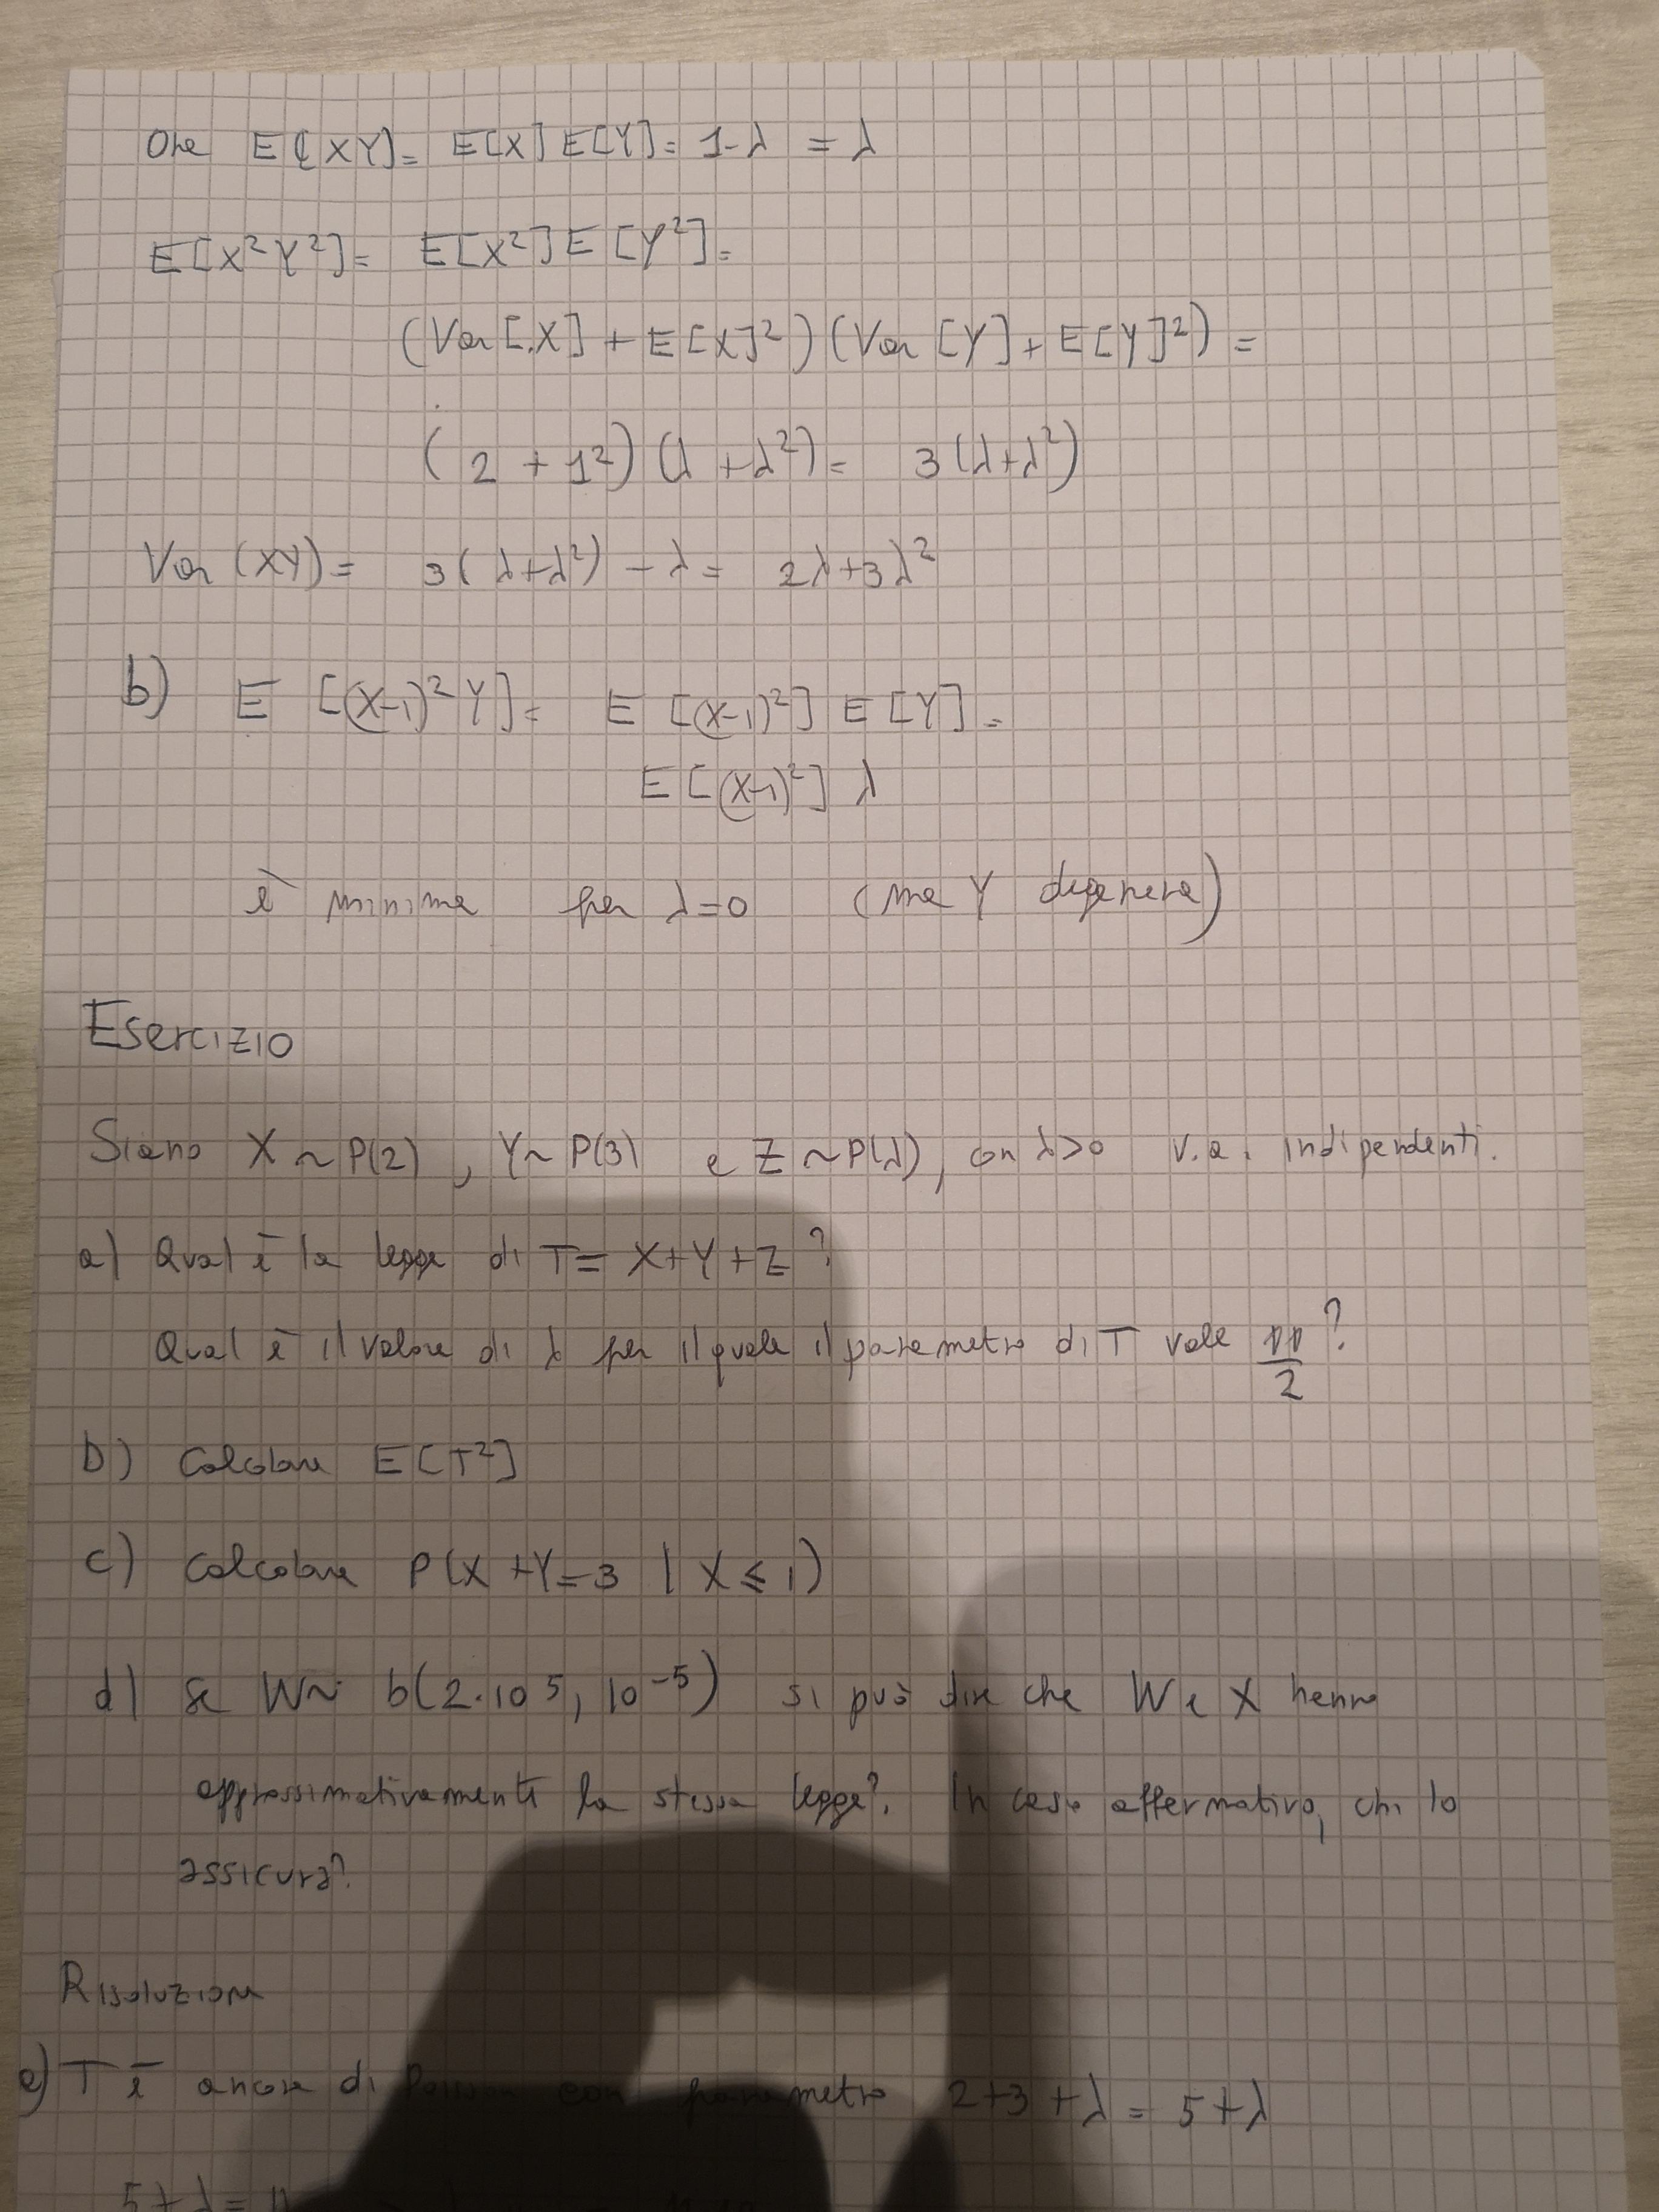 Ora E[XY]= E[X]E[Y]= 1·λ = λ
E[X²Y²]= E[X²]E[Y²]=
(Var[X]+E[X]²)(Var[Y]+E[Y]²)=
(2+1²)(λ+λ²)= 3(λ+λ²)
Var(XY)= 3(λ+λ²)-λ= 2λ+3λ²
b) E[(X-1)²Y]= E[(X-1)²]E[Y]=
E[(X-1)²]λ
è minima per λ=0 (ma Y degenera)
Esercizio
Siano X~P(2), Y~P(3) e Z~P(λ), con λ>0 v.a. indipendenti.
a) Qual è la legge di T= X+Y+Z?
Qual è il valore di λ per il quale il parametro di T vale 11/2?
b) Calcolare E[T²]
c) Calcolare P(X+Y=3 | X≤1)
d) Se W~ b(2·10⁵, 10⁻⁵) si può dire che W e X hanno
approssimativamente la stessa legge? In caso affermativo, chi lo
assicura?
Risoluzione
a) T è ancora di Poisson con parametro 2+3+λ= 5+λ
5+λ=